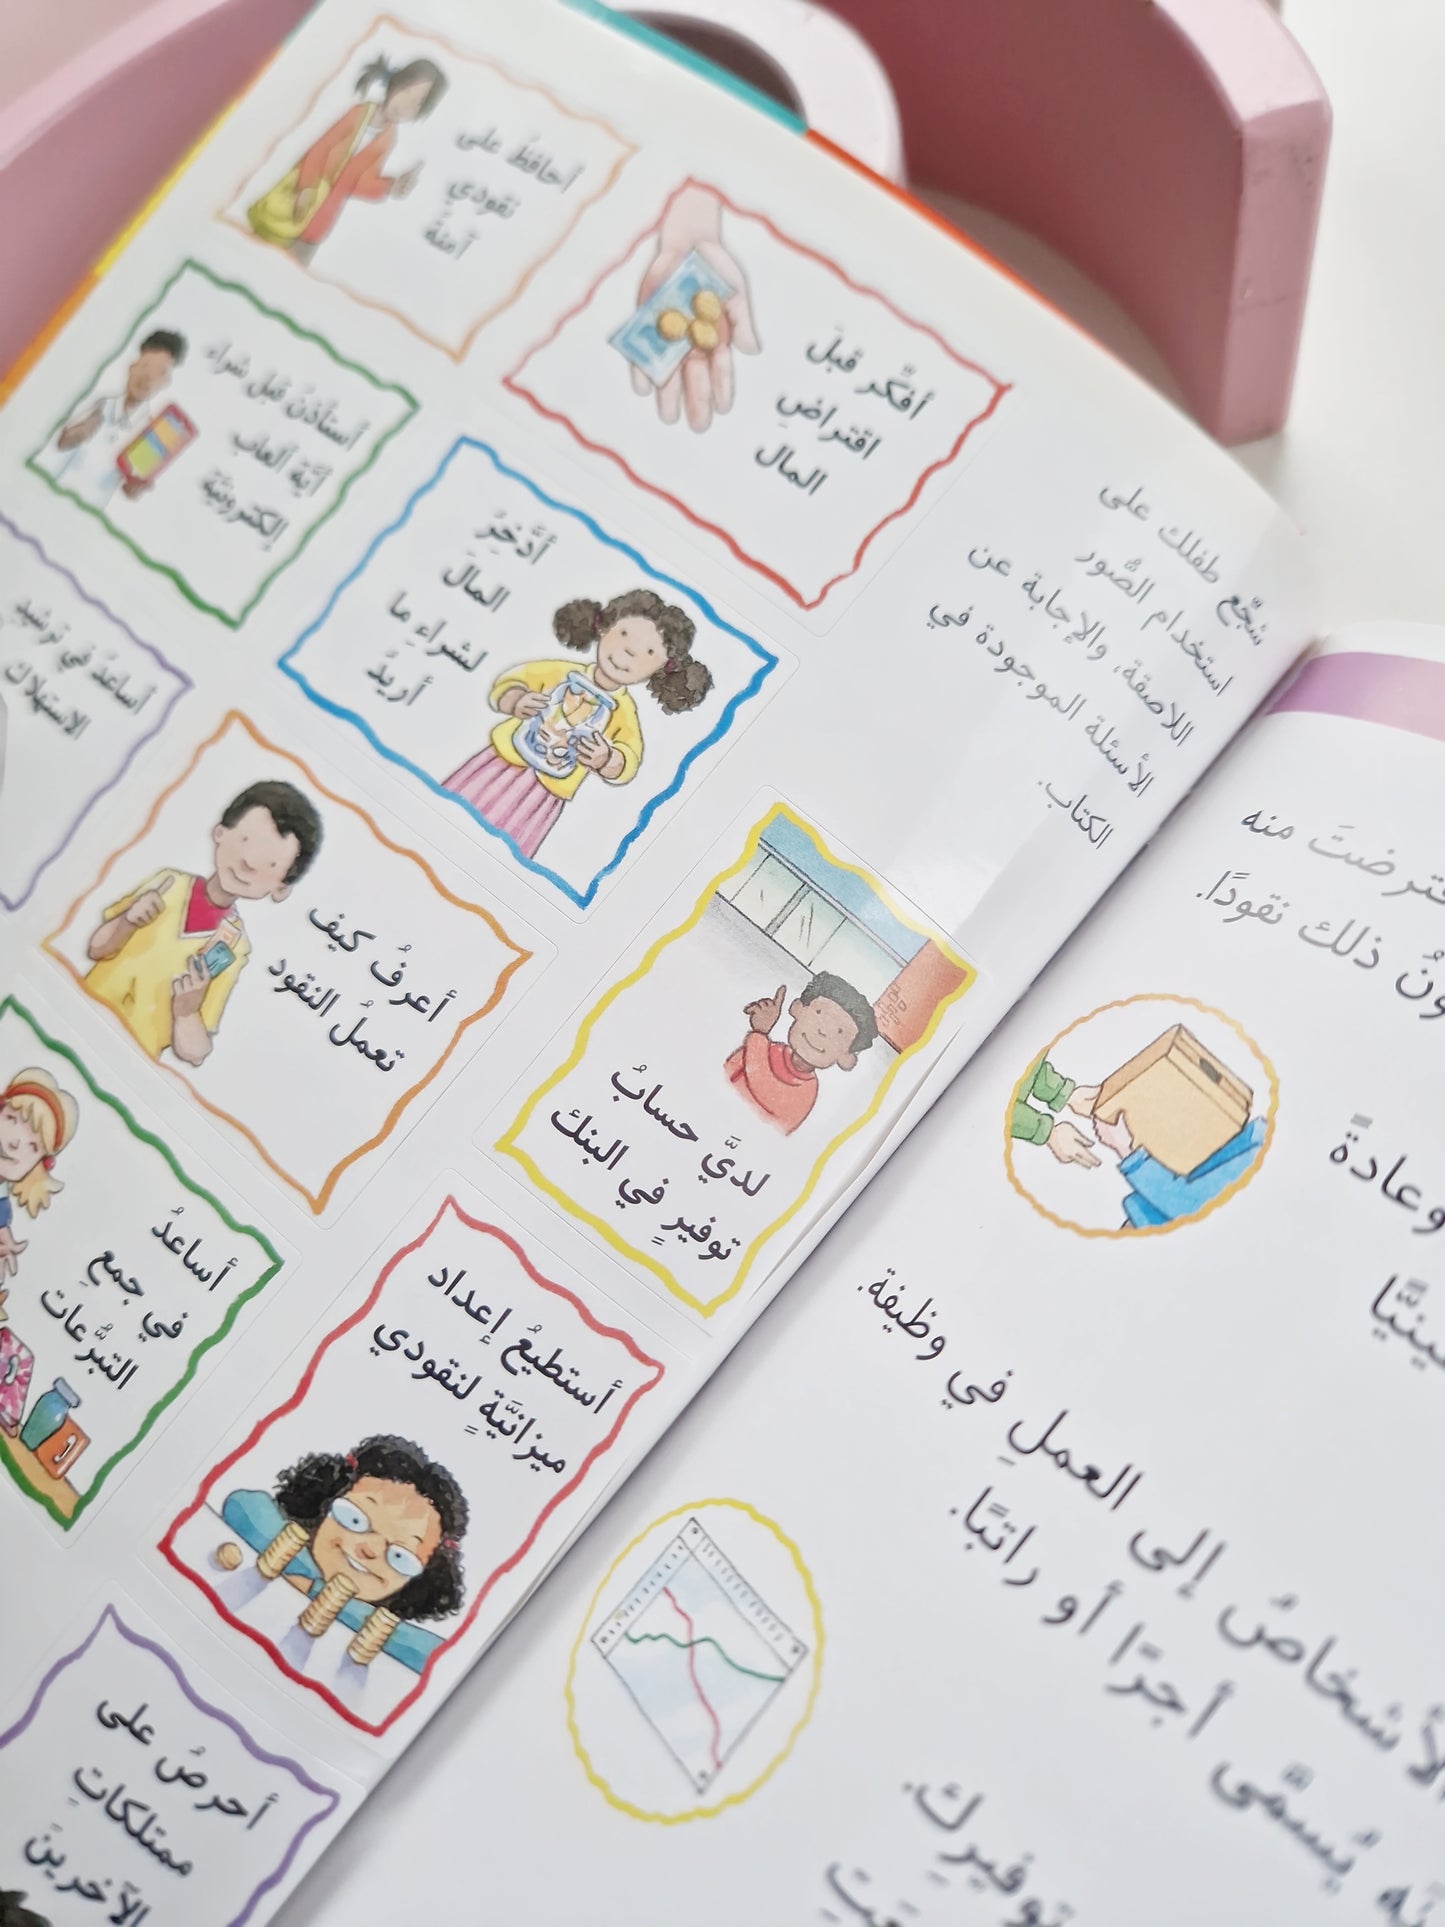 شجّع طفلك على
استخدام الصُّور
اللاصقة، والإجابة عن
الأسئلة الموجودة في
الكتاب.
أحافظُ على
نقودي
آمنةً
أفكّر قبلَ
اقتراضِ
المال
أستأذنُ قبلَ شراء
أيَّة ألعاب
إلكترونيَّة
أدَّخِرُ
المالَ
لشراءِ ما
أريدُ
أساعدُ في ترشيدِ
الاستهلاك
أعرفُ كيف
تعملُ النقود
لديَّ حسابُ
توفيرٍ في البنك
أساعدُ
في جمعِ
التبرُّعات
أستطيعُ إعداد
ميزانيَّةٍ لنقودي
أحرصُ على
ممتلكاتِ
الآخرينَ
منه
ذلك نقودًا.
وعادةً
الأشخاصُ إلى العملِ في وظيفة.
يُسمَّى أجرًا أو راتبًا.
توفيرِك.